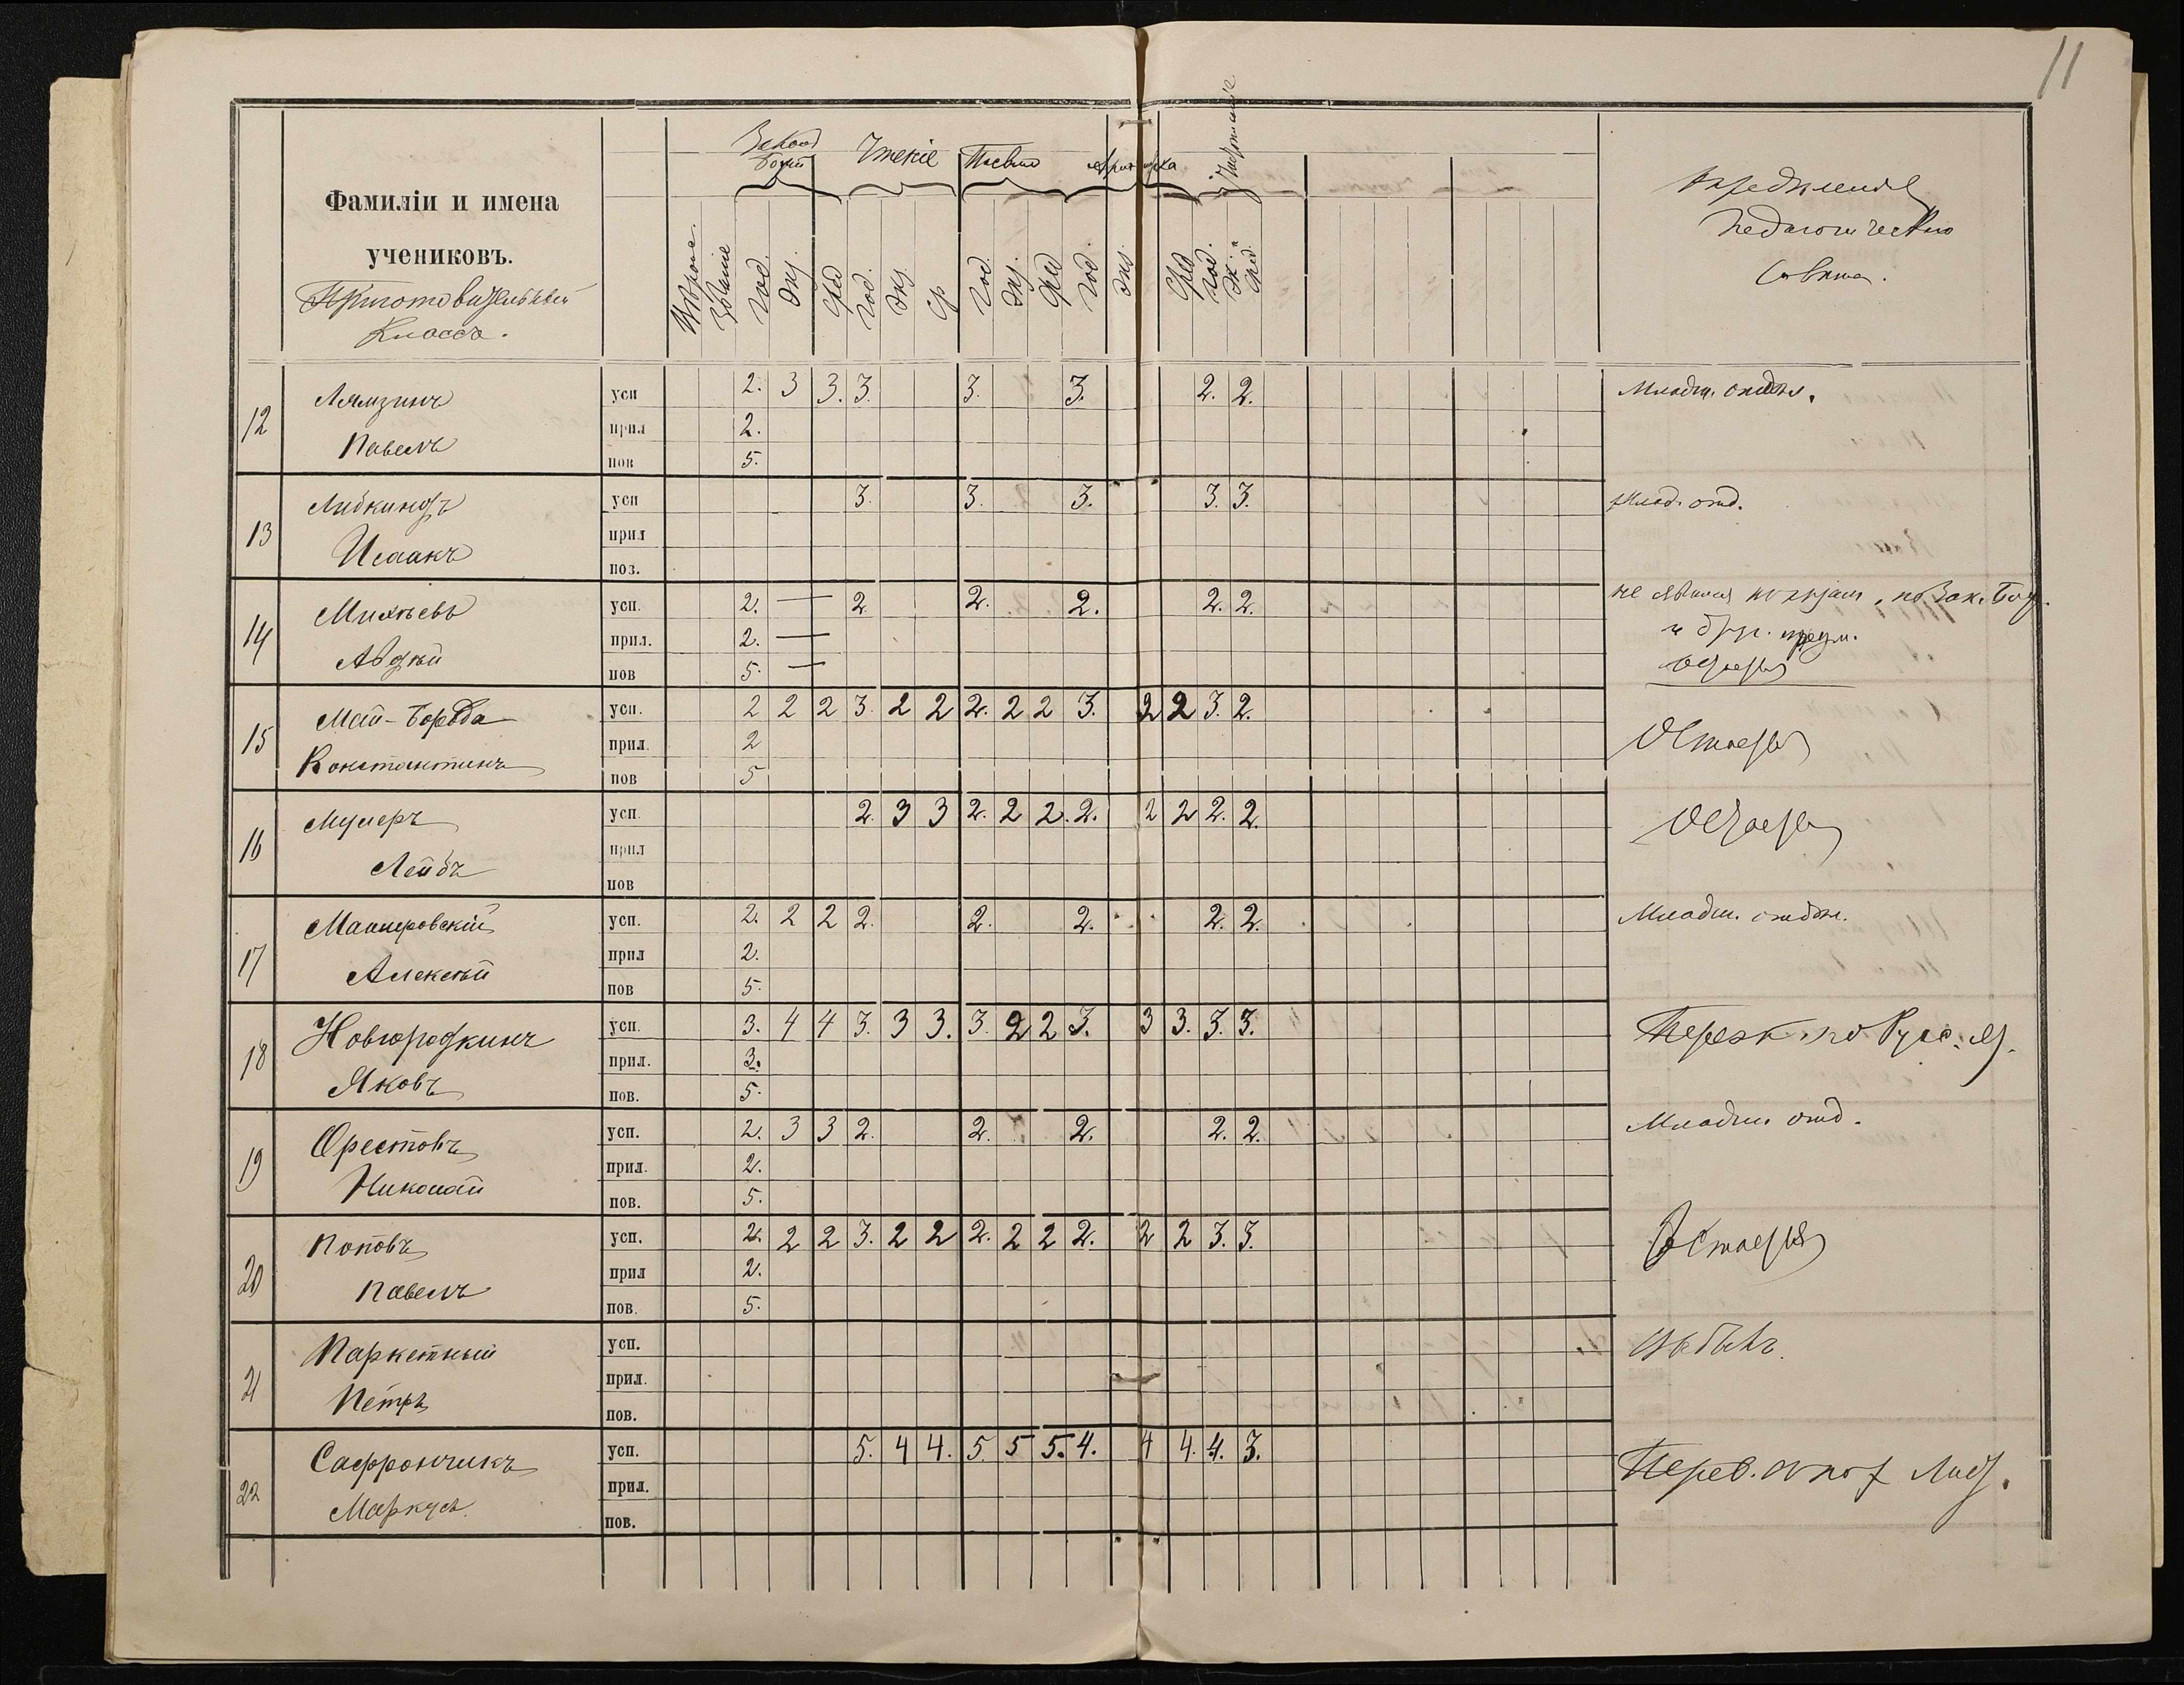 11
Фамилiи и имена
учениковъ.
Приготовительный
Классъ.
Законъ
Божiй
Чтенiе
Письмо
Ариѳметика
Вѣроис.
Званiе
год.
экз.
сред
год.
экз
ср
год.
экз.
сред
год.
экз.
сред
год.
экз.
сред.
Опредѣленiя
Педагогическаго
Совѣта.
12
Лямзинъ
Павелъ
усп 2. 3 3. 3. 3. 3. 2. 2.
прил 2.
пов 5.
Младш. отдѣл.
13
Исаакъ
усп 3. 3. 3. 3. 3.
прил
поз.
Млад. отд.
14
Михѣевъ
Авдѣй
усп. 2. — 2. 2. 2. 2. 2.
прил. 2. —
пов 5. —
не явился по Зак. Бож.
и др. предм.
15
Май-Борода
Константинъ
усп. 2 2 2 3. 2 2 2. 2 2 3. 2 2 3. 2.
прил. 2
пов 5
Остается
16
Лейбъ
усп. 2. 3 3 2. 2 2. 2. 2 2 2. 2.
прил
пов
Остается
17
Алексѣй
усп. 2. 2 2 2. 2. 2. 2. 2.
прил 2.
пов 5.
Младш. отдѣл.
18
Новгородкинъ
Яковъ
усп. 3. 4 4 3. 3 3. 3. 2 2 3. 3 3. 3. 3.
прил. 3.
пов. 5.
Перэкз. по Рус. Яз.
19
Орестовъ
Николай
усп. 2. 3 3 2. 2. 2. 2. 2.
прил. 2.
пов. 5.
Младш. отд.
20
Поповъ
Павелъ
усп. 2. 2 2 3. 2 2 2. 2 2 2. 2 2 3. 3.
прил 2.
пов. 5.
Остается
21
Паркетный
Петръ
усп.
прил.
пов.
Выбылъ.
22
Сафрончикъ
Маркусъ
усп. 5. 4 4. 5. 5 5. 4. 4 4. 4. 3.
прил.
пов.
Перев.